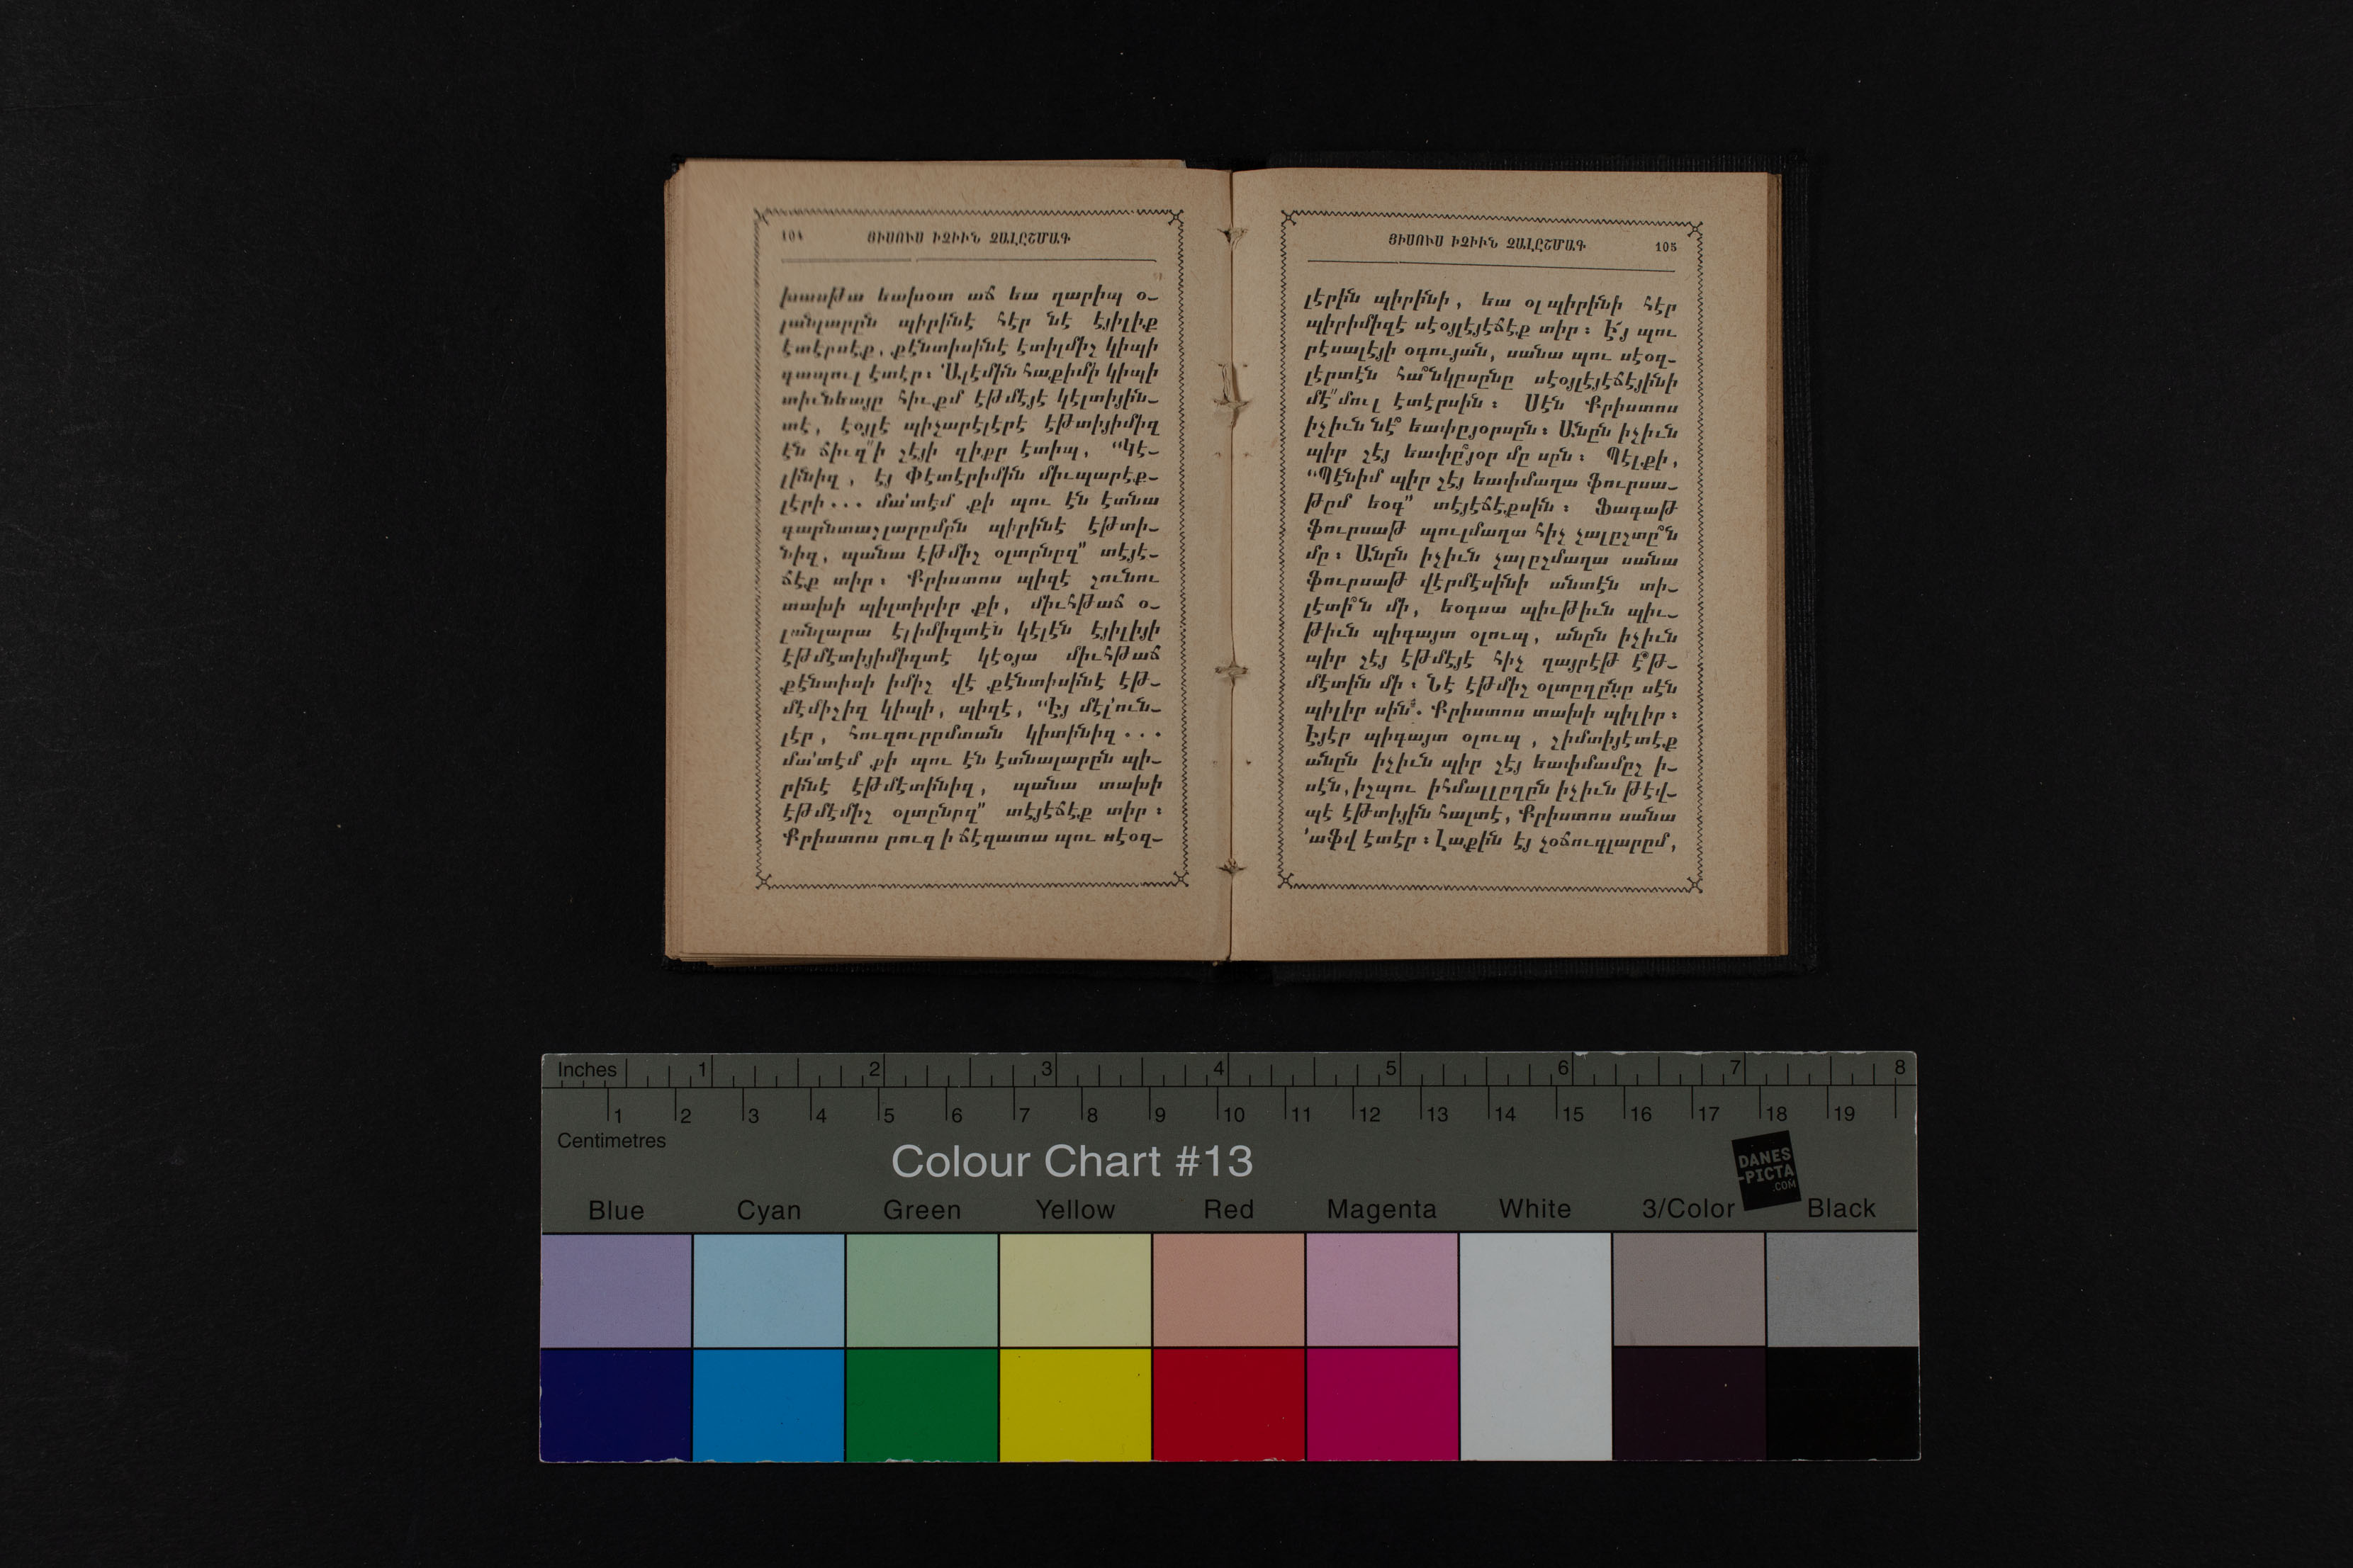 104 ՅԻՍՈՒՍ ԻՉԻՒՆ ՉԱԼԸՇՄԱԳ
խասթա եախօտ աճ եա ղարիպ օ֊
լանլարըն պիրինէ հէր նէ էյիլիք
էտէրսէք, քէնտիսինէ էտիլմիշ կիպի
գապուլ էտէր։ Ալէմին հաքիմի կիպի
տիւնեայը հիւքմ էթմէյէ կէլտիյին֊
տէ, էօյլէ պիչարէլէրէ էթտիյիմիզ
էն ճիւզ՛ի շէյի զիքր էտիպ, “Կէ֊
լինիզ, էյ Փէտէրիմին միւպարէք֊
լէրի... մա՛տէմ քի պու էն էտնա
գարնտաշլարըմըն պիրինէ էթտի֊
նիզ, պանա էթմիշ օլտընըզ” տէյէ֊
ճէք տիր։ Քրիստոս պիզէ շունու
տախի պիլտիրիր քի, միւհթաճ օ֊
լանլարա էլիմիզտէն կէլէն էյիլիյի
էթմէտիյիմիզտէ կէօյա միւհթաճ
քէնտիսի իմիշ վէ քէնտիսինէ էթ֊
մէմիշիզ կիպի, պիզէ, “Էյ մէլ՛ուն֊
լէր, հուզուրըմտան կիտինիզ...
մա՛տէմ քի պու էն էտնալարըն պի֊
րինէ էթմէտինիզ, պանա տախի
էթմէմիշ օլտընըզ” տէյէճէք տիր։
Քրիստոս րուզ ի ճէզատա պու սէօզ֊
ՅԻՍՈՒՍ ԻՉԻՒՆ ՉԱԼԸՇՄԱԳ 105
լէրին պիրինի, եա օլ պիրինի հէր
պիրիմիզէ սէօյլէյէճէք տիր։ Է՛յ պու
րէսալէյի օգույան, սանա պու սէօզ֊
լէրտէն հա՞նկըսընը սէօյլէյէճէյինի
մէ՛՛մուլ էտէրսին։ Սէն Քրիստոս
իչիւն նէ՞ եափըյօրսըն։ Անըն իչիւն
պիր շէյ եափը՞յօր մը սըն։ Պէլքի,
“Պէնիմ պիր շէյ եափմաղա ֆուրսա֊
թըմ եօգ” տէյէճէքսին։ Ֆագաթ
ֆուրսաթ պուլմաղա հիչ չալըշտը՞ն
մը։ Անըն իչիւն չալըշմաղա սանա
ֆուրսաթ վէրմէսինի անտէն տի֊
լէտի՞ն մի, եօգսա պիւթիւն պիւ֊
թիւն պիգայտ օլուպ, անըն իչիւն
պիր շէյ էթմէյէ հիչ ղայրէթ է՞թ֊
մէտին մի։ Նէ էթմիշ օլտըղընը սէն
պիլիր սին. Քրիստոս տախի պիլիր։
Էյէր պիգայտ օլուպ, շիմտիյէտէք
անըն իչիւն պիր շէյ եափմամըշ ի֊
սէն, իշպու իհմալլըղըն իչիւն թէվ֊
պէ էթտիյին հալտէ, Քրիստոս սանա
՛աֆվ էտէր։ Լաքին էյ չօճուգլարըմ,
Inches 1 2 3 4 5 6 7 8
1 2 3 4 5 6 7 8 9 10 11 12 13 14 15 16 17 18 19
Centimetres
Colour Chart #13
DANES
-PICTA
.COM
Blue Cyan Green Yellow Red Magenta White 3/Color Black